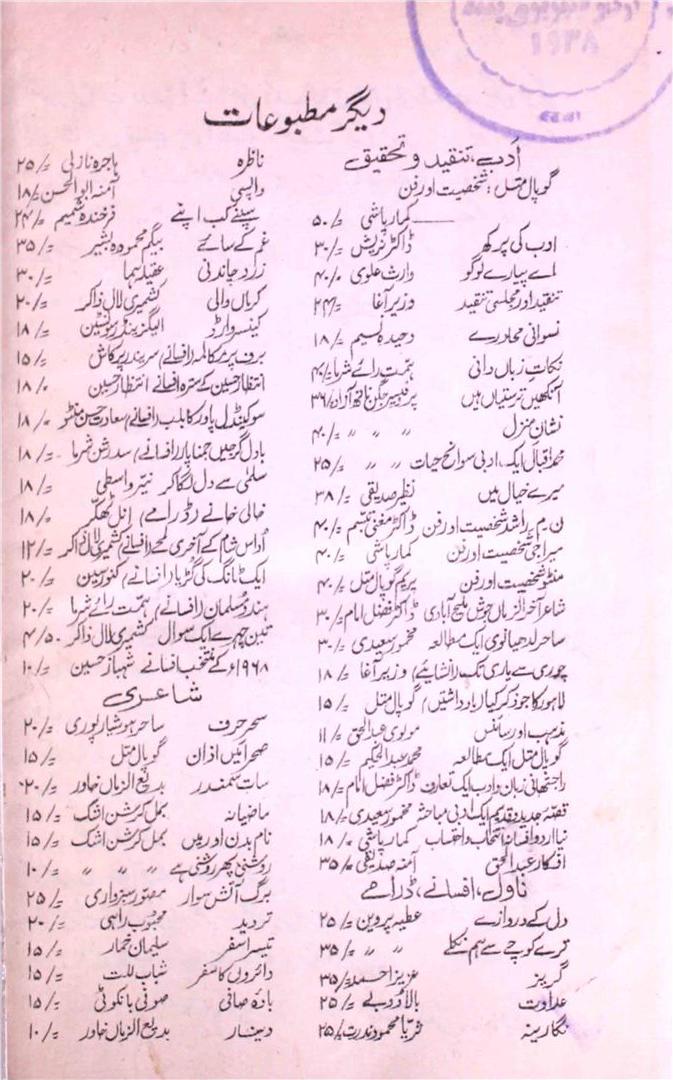 ۱۹۳۸
دیگر مطبوعات
ادب، تنقید و تحقیق
گوپال متل: شخصیت اور فن
کمار پاشی ۵۰/=
ادب کی پرکھ ڈاکٹر نریش ۳۰/=
اے پیارے لوگو وارث علوی ۴۰/=
تنقید اور مجلسی تنقید وزیر آغا ۲۴/=
نسوانی محاورے وحیدہ نسیم ۱۸/=
نکات زباں دانی ہمت رائے شرما ۴۰/=
آنکھیں ترستیاں ہیں پروفیسر جگن ناتھ آزاد ۳۶/=
نشان منزل " " " ۴۰/=
محمد اقبال ایک ادبی سوانح حیات " " ۲۵/=
میرے خیال میں نظیر صدیقی ۳۸/=
ن۔م۔ راشد شخصیت اور فن ڈاکٹر مغنی تبسم ۴۰/=
میراجی شخصیت اور فن کمار پاشی ۴۰/=
منٹو شخصیت اور فن پریم گوپال متل ۴۰/=
شاعر آخرالزماں جوش ملیح آبادی ڈاکٹر فضل امام ۳۰/=
ساحر لدھیانوی ایک مطالعہ مخمور سعیدی ۳۰/=
چوری سے یاری تک (انشائیے) وزیر آغا ۱۸/=
لاہور کا جو ذکر کیا (یادداشتیں) گوپال متل ۱۵/=
مذہب اور سائنس مولوی عبدالحق ۱۱/=
گوپال متل ایک مطالعہ محمد عبدالحکیم ۱۵/=
راجستھانی زبان و ادب ایک تعارف ڈاکٹر فضل امام ۱۸/=
قصہ جدید و قدیم ایک ادبی مباحثہ مخمور سعیدی ۱۸/=
نیا اردو افسانہ انتخاب و احتساب کمار پاشی ۱۸/=
افکار عبدالحق آمنہ صدیقی ۳۵/=
ناول، افسانے، ڈرامے
دل کے دروازے عطیہ پروین ۲۵/=
ترے کوچے سے ہم نکلے " " ۳۵/=
گریز عزیز احمد ۳۵/=
عداوت بالا دوبے ۲۵/=
نگارینہ ثریا محمود ندرت ۲۵/=
ناظرہ ہاجرہ نازلی ۲۵/=
واپسی آمنہ ابوالحسن ۱۸/=
سپنے کب اپنے فرخندہ شمیم ۲۴/=
غم کے سائے بیگم محمودہ بشیر ۳۵/=
زرد چاندنی عقیلہ سہا ۳۰/=
کرماں والی کشمیری لال ذاکر ۲۰/=
کینسر وارڈ الیگزینڈر سولنسٹین ۱۸/=
برف پر مکالمہ (افسانے) سریندر پرکاش ۱۵/=
انتظار حسین کے سترہ افسانے انتظار حسین ۱۸/=
سو کینڈل پاور کا بلب (افسانے) سعادت حسن منٹو ۱۸/=
بادل گرجیں جمنا پار (افسانے) سدرشن شرما ۱۸/=
سلمیٰ سے دل لگا کر نیر واسطی ۱۸/=
خالی خانے (ڈرامے) انل ٹھکر ۱۸/=
اداس شام کے آخری لمحے (افسانے) کشمیری لال ذاکر ۱۲/=
ایک ٹانگ کی گڑیا (افسانے) کنور سین ۲۰/=
ہندو مسلمان (افسانے) ہمت رائے شرما ۲۰/=
تین چہرے ایک سوال کشمیری لال ذاکر ۴/۵۰
۱۹۶۸ء کے منتخب افسانے شہباز حسین ۱۰/=
شاعری
سحر حرف ساحر ہوشیارپوری ۲۰/=
صحرا میں اذان گوپال متل ۱۵/=
سات سمندر بدیع الزماں خاور ۲۰/=
ماضیانہ بمل کرشن اشک ۱۵/=
نام بدن اور میں بمل کرشن اشک ۱۵/=
روشنی پھر روشنی ہے " " " ۱۰/=
برگ آتش سوار مصور سبزواری ۲۵/=
تردید محبوب راہی ۲۰/=
تیسرا سفر سلیمان خمار ۱۵/=
دائروں کا سفر شباب للت ۱۵/=
بادۂ صافی صوفی بانکوٹی ۱۵/=
بدیع الزماں خاور ۱۰/=